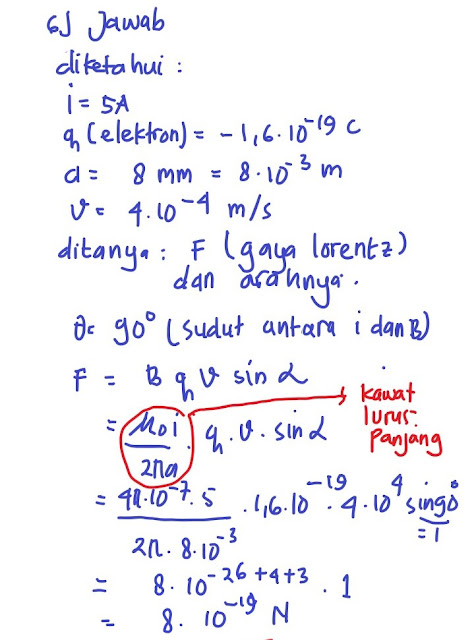 6) Jawab
diketahui :
i = 5A
q (elektron) = -1,6.10⁻¹⁹ C
a = 8 mm = 8.10⁻³ m
v = 4.10⁻⁴ m/s
ditanya : F (gaya lorentz)
dan arahnya.
θ = 90° (sudut antara i dan B)
F = B q v sin α
= μ₀i / 2πa . q . v . sin α → kawat lurus panjang
= 4π.10⁻⁷.5 / 2π . 8.10⁻³ . 1,6.10⁻¹⁹ . 4.10⁴ sin 90° = 1
= 8.10⁻²⁶⁺⁴⁺³ . 1
= 8. 10⁻¹⁹ N